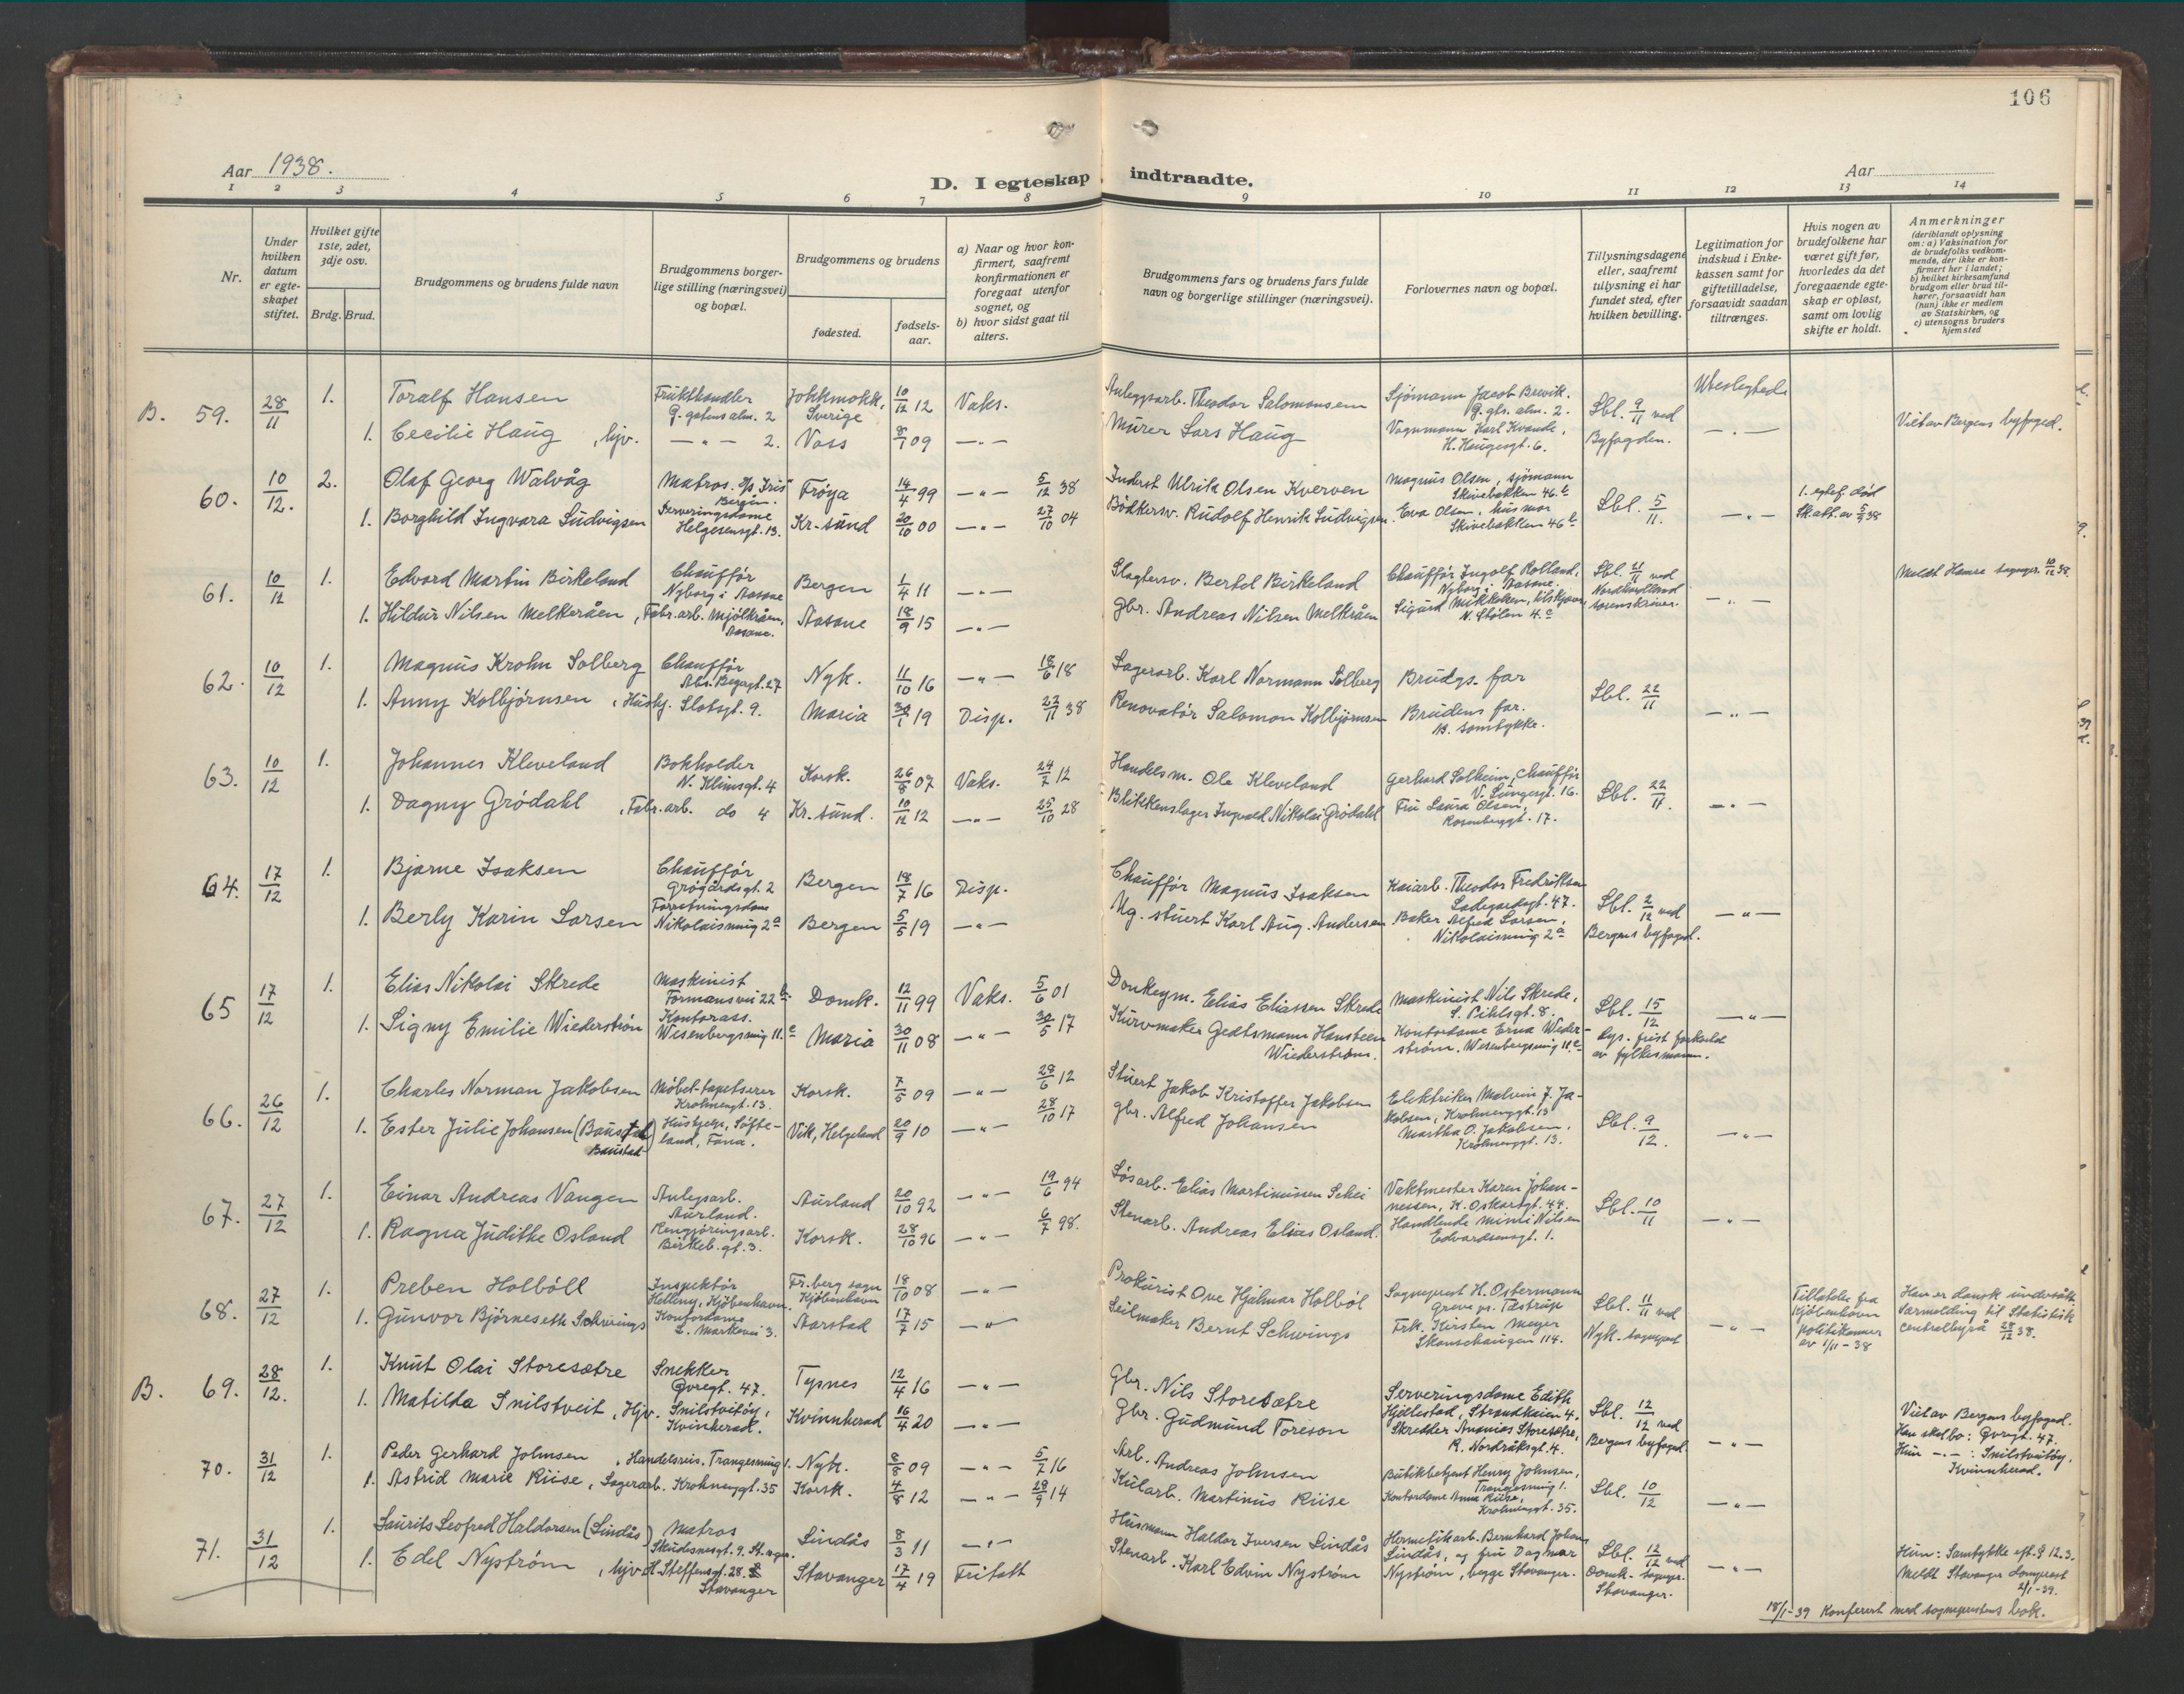 106
Aar 1938.
D. I egteskap indtraadte.
Aar
1 2 3 4 5 6 7 8 9 10 11 12 13 14
Nr.
Under hvilken datum er egteskapet stiftet.
Hvilket gifte 1ste, 2det, 3dje osv.
Brdg. Brud.
Brudgommens og brudens fulde navn
Brudgommens borgerlige stilling (næringsvei) og bopæl.
Brudgommens og brudens
fødested.
fødselsaar.
a) Naar og hvor konfirmert, saafremt konfirmationen er foregaat utenfor sognet, og
b) hvor sidst gaat til alters.
Brudgommens fars og brudens fars fulde navn og borgerlige stillinger (næringsvei).
Forlovernes navn og bopæl.
Tillysningsdagene eller, saafremt tillysning ei har fundet sted, efter hvilken bevilling.
Legitimation for indskud i Enkekassen samt for giftetilladelse, forsaavidt saadan tiltrænges.
Hvis nogen av brudefolkene har været gift før, hvorledes da det foregaaende egteskap er opløst, samt om lovlig skifte er holdt.
Anmerkninger (deriblandt oplysning om: a) Vaksination for de brudefolks vedkommende, der ikke er konfirmert her i landet; b) hvilket kirkesamfund brudgom eller brud tilhører, forsaavidt han (hun) ikke er medlem av Statskirken, og c) utensogns bruders hjemsted
B. 59. 28/11 1. Toralf Hansen Frukthandler G. gatens alm. 2 Jokkmokk, Sverige 10/12 12 Vaks. Anleggsarb. Theodor Salomonsen Sjømann Jacob Brevik. G. gts. alm. 2. Lbl. 9/11 ved Byfogden. Vbeslegtede
1. Cecilie Haug, hjv. — " — 2. Voss 8/1 09 — " — Murer Lars Haug Vognmann Karl Kvande, H. Haugesgt. 6. — " — Viet av Bergens byfoged.
60. 10/12. 2. Olaf Georg Walvåg Matros. D/s "Iris" Bergen. Frøya 14/4 99 — " — 5/12 38 Inderst Ulrik Olsen Kverven Magnus Olsen, sjømann Skivebakken 46.b Lbl. 5/11. — " — 1. ektef. død Sk.att. av 5/9 38
1. Borghild Ingvara Ludvigsen Serveringsdame Helgesensgt. 13. Kr-sund 20/10 00 — " — 27/10 04 Bødkersv. Rudolf Henrik Ludvigsen Eva Olsen, husmor Skivebakken 46 b
61. 10/12 1. Edvard Martin Birkeland Chauffør Nyborg i Aasane Bergen 1/4 11 — " — Slagtersv. Bertel Birkeland Chauffør Ingolf Rolland, Nyborg i Aasane. Lbl. 21/11 ved Nordhordland sorenskriver. — " — Meldt Hamre sognepr. 10/12 38.
1. Hildur Nilsen Melkeråen, Fabr.arb. Mjølkråen, Aasane. Aasane 18/9 15 — " — Gbr. Andreas Nilsen Melkråen Sigurd Mikkelsen, tilskjærer, N. Stølen 4.c
62. 10/12 1. Magnus Krohn Solberg Chauffør Abs. Beyersgt. 27 Nyk. 11/10 16 — " — 18/6 18 Lagerarb. Karl Normann Solberg Brudgs. far Lbl. 22/11 — " —
1. Anny Kolbjørnsen, Hushj. Slotsgt. 9. Maria 30/1 19 Disp. 22/11 38 Renovatør Salomon Kolbjørnsen Brudens far. B. samtykke.
63. 10/12 1. Johannes Kleveland Bokholder N. Klimsgt. 4 Korsk. 26/8 07 Vaks. 24/2 12 Handelsm. Ole Kleveland Gerhard Solheim, chauffør V. Lungesgt. 16. Lbl. 22/11. — " —
1. Dagny Grødahl, Fabr.arb. do 4 Kr.-sund. 10/12 12 — " — 25/10 28 Blikkenslager Ingvald Nikolai Grødahl Fru Laura Olsen, Rosenberggt. 17.
64. 17/12 1. Bjarne Isaksen Chauffør Grógårdsgt. 2 Bergen 18/7 16 Disp. Chauffør Magnus Isaksen Kaiarb. Theodor Fredriksen Ladegårdsgt. 47. Lbl. 2/12 ved Bergens byfoged. — " —
1. Berly Karin Larsen Forretningsdame Nikolaismug 2a Bergen 5/5 19 — " — Ug. stuert Karl Aug. Andersen Baker Alfred Larsen, Nikolaismug 2a
65 17/12 1. Elias Nikolai Skrede Maskinist Formansvei 22 b. Domk. 12/11 99 Vaks. 5/6 01 Donkeym. Elias Eliassen Skrede Maskinist Nils Skrede, S. Pihlsgt. 8. Lbl. 15/12 — " —
1. Signy Emilie Wiederstrøm Kontorass. Wesenbergsmug 11.c Maria 30/11 08 — " — 30/5 17 Kurvmaker Gedtsmann Hansteen Wiederstrøm. Kontordame Erna Wiederstrøm. Wesenbergsmug 11.c lys. frist forkortet av fylkesmann.
66. 26/12 1. Charles Norman Jakobsen Møbel-tapetserer Krohnengt. 13. Korsk. 7/5 09 — " — 28/6 12 Stuert Jakob Kristoffer Jakobsen Elektriker Malvin J. Jakobsen, Krohnenggt. 13 Lbl. 9/12. — " —
1. Ester Julie Johansen (Baustad) Baustad Hushjelp, Søfteland, Fana. Vik, Helgeland 20/9 10 — " — 28/10 17 Gbr. Alfred Johansen Martha O. Jakobsen, Krohnenggt. 13.
67. 27/12 1. Einar Andreas Vangen Anlegsarb. Aurland. Aurland 20/10 92 — " — 19/6 94 Løsarb. Elias Martinusen Schei Vaktmester Karen Johannessen, K. Oskarsgt. 44. Lbl. 10/11 — " —
1. Ragna Judithe Osland Rengjøringsarb. Birkeb. gt. 3. Korsk. 28/10 96 — " — 6/7 98. Stenarb. Andreas Elias Osland. Handlende Mimi Nilsen Edvardsensgt. 1.
68. 27/12 1. Preben Holbøll Inspektør Kjøbenhavn. Fr.berg sogn Kjøbenhavn 18/10 08 — " — Prokurist Ove Hjalmar Holbøl Sogneprest H. Ostermann Greve pr. Tåstrup Lbl. 11/11 ved Nyk. sogneprest — " — Tillatelse fra Kjøbenhavn politikammer av 1/11-38 Han er dansk undersått Særmelding til Statistisk centralbyrå 28/12 38.
1. Gunvor Bjørneseth Schwings Kontordame L. Markevei 3. Aarstad 17/7 15 — " — Seilmaker Bernt Schwings Frk. Kirsten Meyer Skansehaugen 114.
B. 69. 28/12. 1. Knut Olai Storesætre Snekker Øvregt. 47. Tysnes 12/4 16 — " — Gbr. Nils Storesætre Serveringsdame Edith Hjellestad, Strandkaien 4. Lbl. 12/12 ved Bergens byfoged. — " — Viet av Bergens byfoged. Han skal bo: Øvregt. 47.
1. Matilda Snilstveit, Hjv. Snilstveitøy, Kvinnherad. Kvinnherad 16/4 20 — " — Gbr. Gudmund Toreson Skredder Ananias Storesætre, R. Nordråksgt. 4. Hun — " — : Snilstveitøy, Kvinnherad.
70. 31/12 1. Peder Gerhard Johnsen, Handelsreis. Trangesmug 1. Nyk. 8/8 09 — " — 5/7 16 Arb. Andreas Johnsen Butikbetjent Henry Johnsen, Trangesmug 1. Lbl. 10/12 — " —
1. Astrid Marie Riise, Lagerarb. Krohnenggt. 35 Korsk. 4/8 12 — " — 29/9 14 Kularb. Martinus Riise Kontordame Anna Riise, Krohnenggt. 35.
71. 31/12 1. Laurits Leofred Haldorsen (Lindås) Matros Skudesnesgt. 9. St.vanger. Lindås 8/3 11 — " — Husmann Haldor Iversen Lindås Hermetikarb. Bernhard Johan Lindås, og fru Dagmar Nystrøm, begge Stavanger. Lbl. 12/12 ved Domk. sognepr. Stavanger. — " — Hun: Samtykke eft. § 12.3. Meldt Stavanger domprost 2/1-39.
1. Edel Nystrøm, hjv. St. Steffensgt. 28. Stavanger Stavanger 17/4 19 Fritatt Stenarb. Karl Edvin Nystrøm
18/1-39 Konferert med sogneprestens bok.